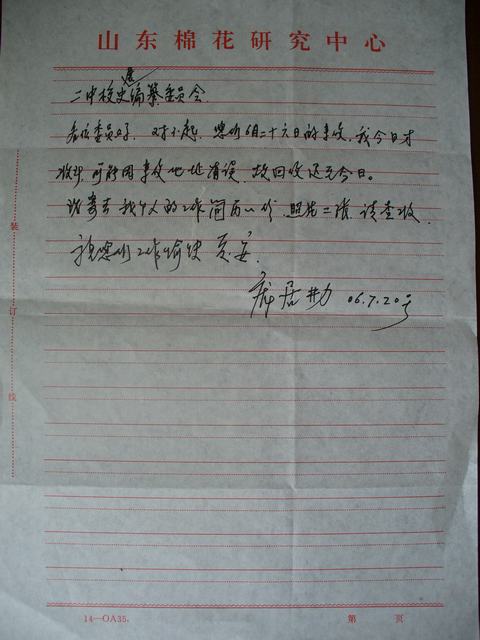 山东棉花研究中心
二中校史编纂委员会
各位委员好，对不起，您们6月二十六日的来收，我今日才
收到，可能因来收地址有误，故回收延至今日。
现寄去我个人的工作简历一份，照片二张，请查收。
祝您们工作愉快 夏安。
庞居 06.7.20号
装
订
线
14—OA35.
第 页